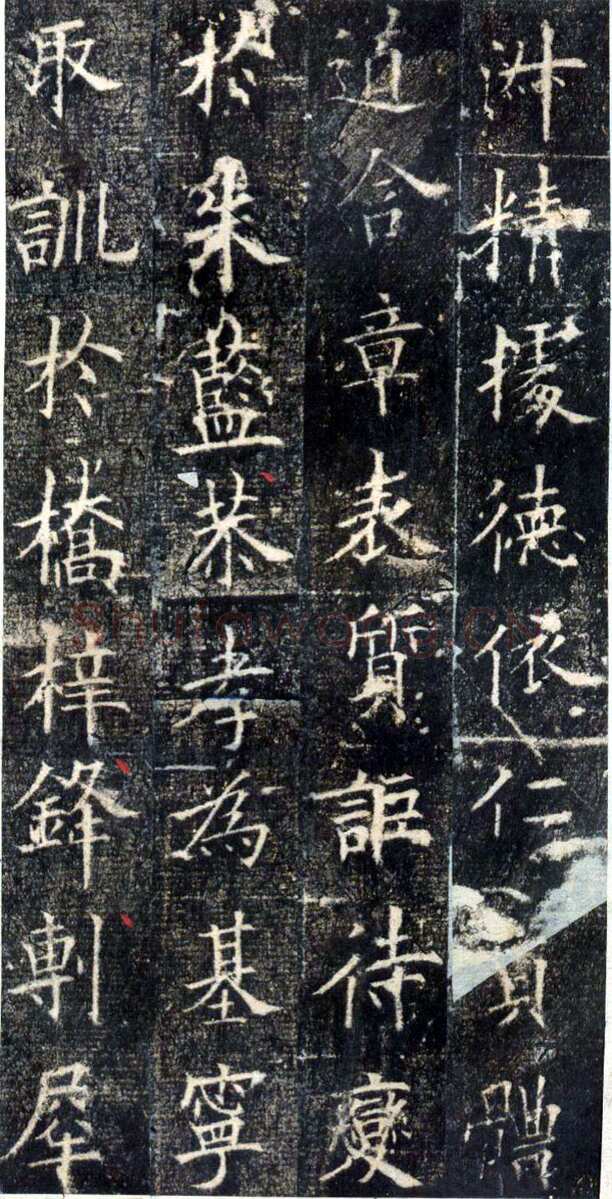 渊精據德依仁具體
道合章表質詎待變
於采藍恭孝為基寧
取訓於橋梓鋒剸犀
Shufawang.CN